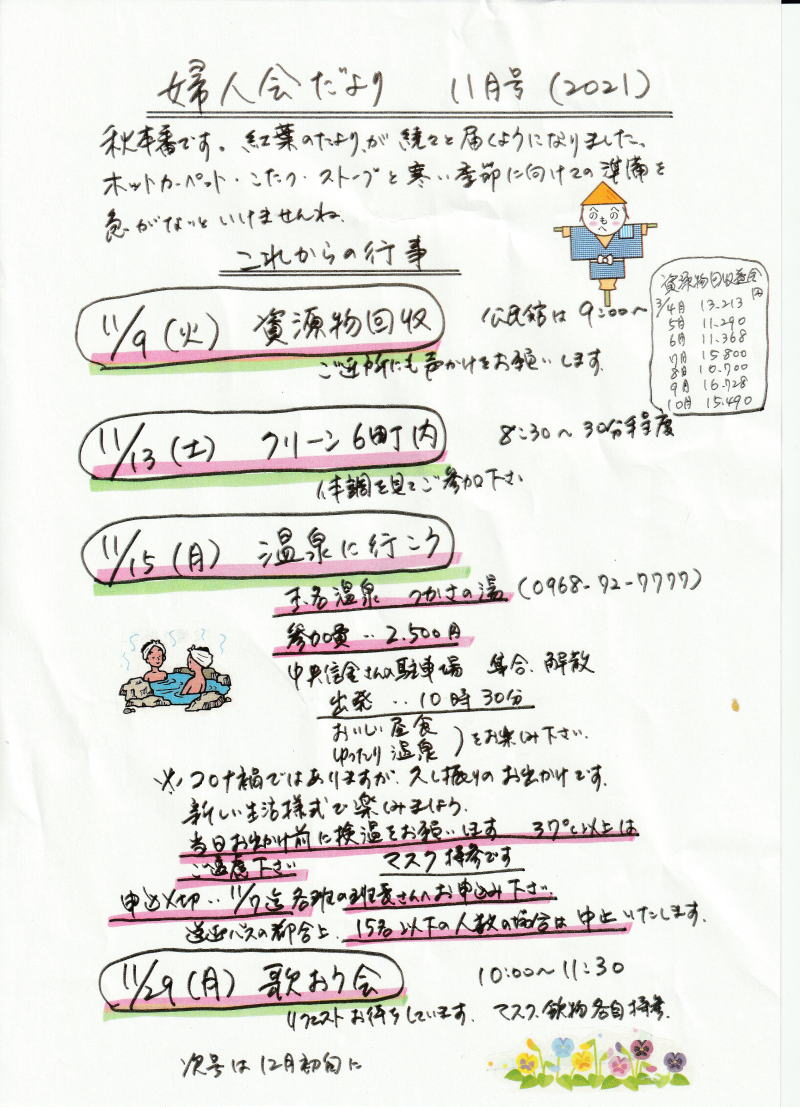 婦人会だより 11月号 (2021)
秋本番です。紅葉のたよりが続々と届くようになりました。
ホットカーペット・こたつ・ストーブと寒い季節に向けての準備を
急がないといけませんね。
これからの行事
11/9 (火) 資源物回収
公民館は 9:00〜
ご近所にも声かけをお願いします。
資源物回収益金
円
3/4月 13.213
5月 11.290
6月 11.368
7月 15.800
8月 10.700
9月 16.728
10月 15.490
11/13 (土) クリーン6町内
8:30〜30分程度
体調を見てご参加下さい
11/15 (月) 温泉に行こう
玉名温泉 つかさの湯 (0968-72-7777)
参加費‥2.500円
中央信金さんの駐車場 集合、解散
出発‥10時30分
おいしい昼食
ゆったり温泉 ) をお楽しみ下さい。
※ コロナ禍ではありますが、久し振りのお出かけです。
新しい生活様式で楽しみましょう。
当日お出かけ前に検温をお願いします 37℃以上は
ご遠慮下さい マスク持参です
申込〆切‥11/7迄 各班の班長さんへお申込み下さい。
送迎バスの都合上、15名以下の人数の場合は中止いたします。
11/29 (月) 歌おう会
10:00〜11:30
リクエストお待ちしています。マスク、飲物各自持参。
次号は12月初旬に